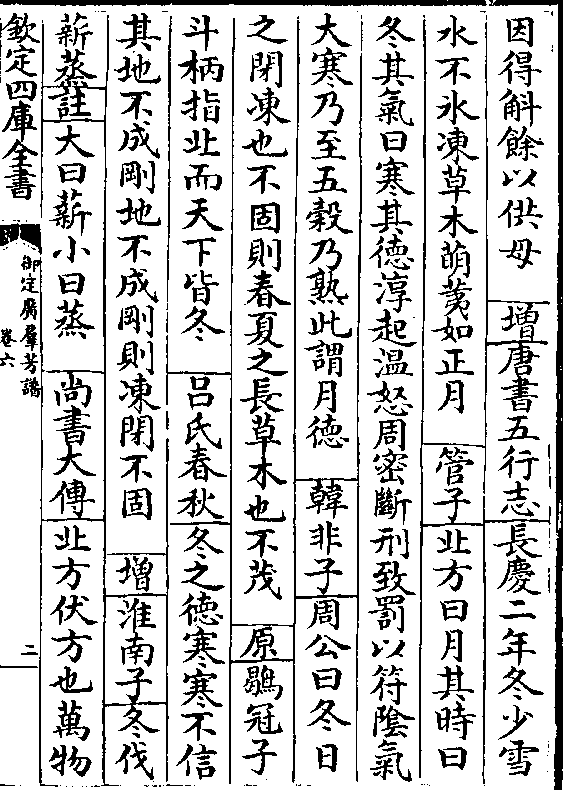 因得斛餘以供母　增唐書五行志長慶二年冬少雪
水不氷凍草木萌荑如正月　管子北方曰月其時曰
冬其氣曰寒其德淳起溫怒周密斷刑致罰以符隂氣
大寒乃至五穀乃熟此謂月徳　韓非子周公曰冬日
之閉凍也不固則春夏之長草木也不茂　原鶡冠子
斗柄指北而天下皆冬　吕氏春秋冬之德寒寒不信
其地不成剛地不成剛則凍閉不固　增淮南子冬伐
薪蒸註大曰薪小曰蒸　尚書大傳北方伏方也萬物
欽定四庫全書
御定廣羣芳譜
卷六
二